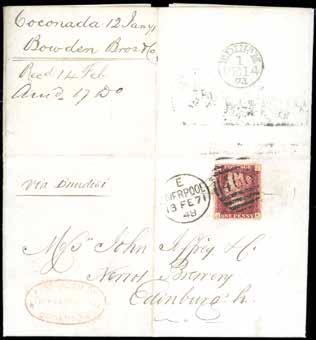 Coconada 12 Jany
Bowden Bros & Co
Recd 14 Feb
Ansd 17 Do
1
FE 14
71
Via Brindisi
E
LIVERPOOL
13 FE 71
48
466
ONE PENNY
Messrs John Jeffrey & Co.
Brewery
Edinburgh